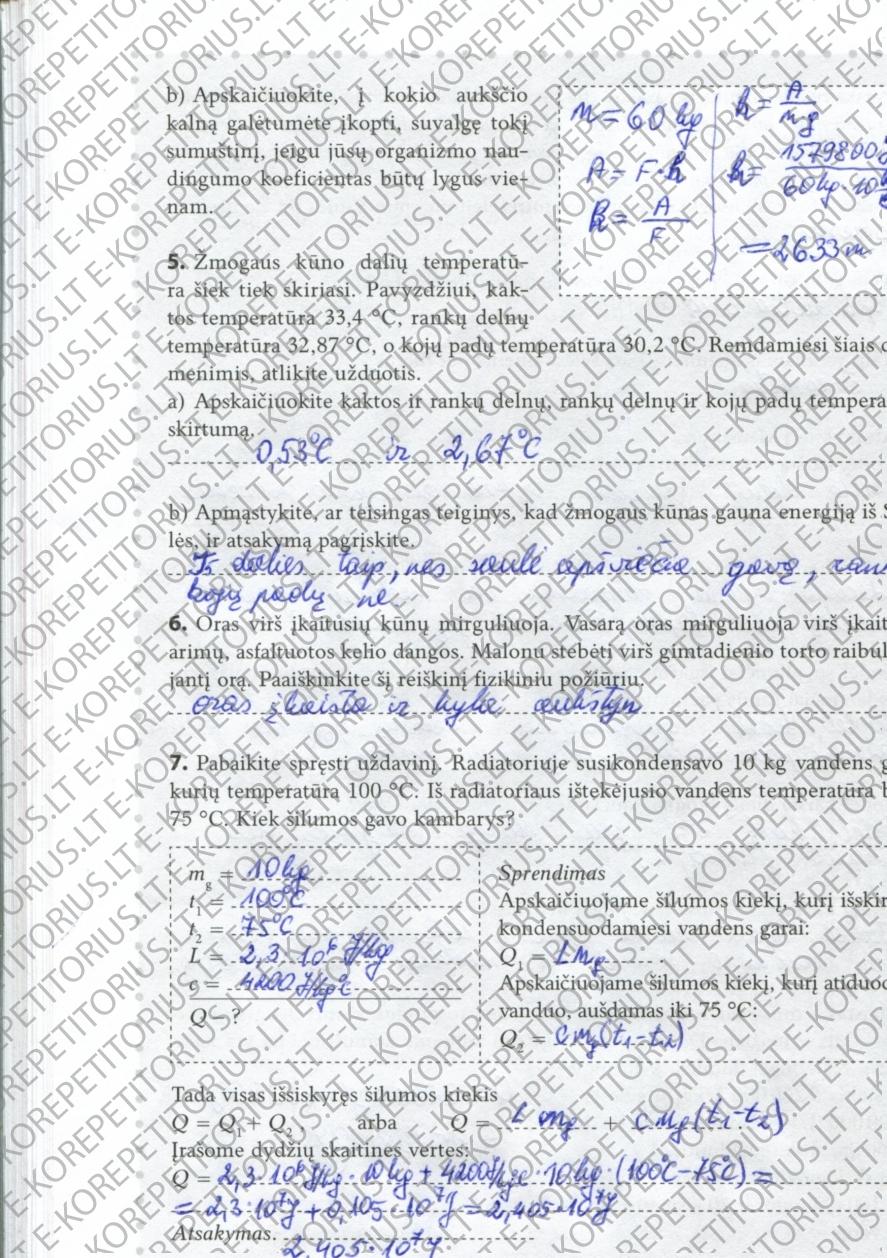 b) Apskaičiuokite, į kokio aukščio
kalną galėtumėte įkopti, suvalgę tokį
sumuštinį, jeigu jūsų organizmo nau-
dingumo koeficientas būtų lygus vie-
nam.
m = 60 kg
A = F·h
h = A/F
h = A/mg
h = 1579800 / 60 kg · 10
= 2633 m
5. Žmogaus kūno dalių temperatū-
ra šiek tiek skiriasi. Pavyzdžiui, kak-
tos temperatūra 33,4 °C, rankų delnų
temperatūra 32,87 °C, o kojų padų temperatūra 30,2 °C. Remdamiesi šiais
menimis, atlikite užduotis.
a) Apskaičiuokite kaktos ir rankų delnų, rankų delnų ir kojų padų tempera
skirtumą.
0,53°C ir 2,67°C
b) Apmąstykite, ar teisingas teiginys, kad žmogaus kūnas gauna energiją iš S
lės, ir atsakymą pagrįskite.
Iš dalies taip, nes saulė apšviečia galvą, ran
kojų padų ne.
6. Oras virš įkaitusių kūnų mirguliuoja. Vasarą oras mirguliuoja virš įkait
arimų, asfaltuotos kelio dangos. Malonu stebėti virš gimtadienio torto raibul
jantį orą. Paaiškinkite šį reiškinį fizikiniu požiūriu.
oras įkaista ir kyla aukštyn
7. Pabaikite spręsti uždavinį. Radiatoriuje susikondensavo 10 kg vandens g
kurių temperatūra 100 °C. Iš radiatoriaus ištekėjusio vandens temperatūra b
75 °C. Kiek šilumos gavo kambarys?
m_g = 10 kg
t₁ = 100°C
t₂ = 75°C
L = 2,3 · 10⁶ J/kg
c = 4200 J/kg°C
Q – ?
Sprendimas
Apskaičiuojame šilumos kiekį, kurį išskir
kondensuodamiesi vandens garai:
Q₁ = Lm_g.
Apskaičiuojame šilumos kiekį, kurį atiduod
vanduo, aušdamas iki 75 °C:
Q₂ = cm_g(t₁-t₂)
Tada visas išsiskyręs šilumos kiekis
Q = Q₁ + Q₂, arba Q = L m_g + cm_g(t₁-t₂)
Įrašome dydžių skaitines vertes:
Q = 2,3·10⁶ J/kg · 10 kg + 4200 J/kg°C · 10 kg · (100°C – 75°C) =
= 2,3·10⁷J + 0,105·10⁷J = 2,405·10⁷J
Atsakymas. 2,405·10⁷J.
E-KOREPETITORIUS.LT